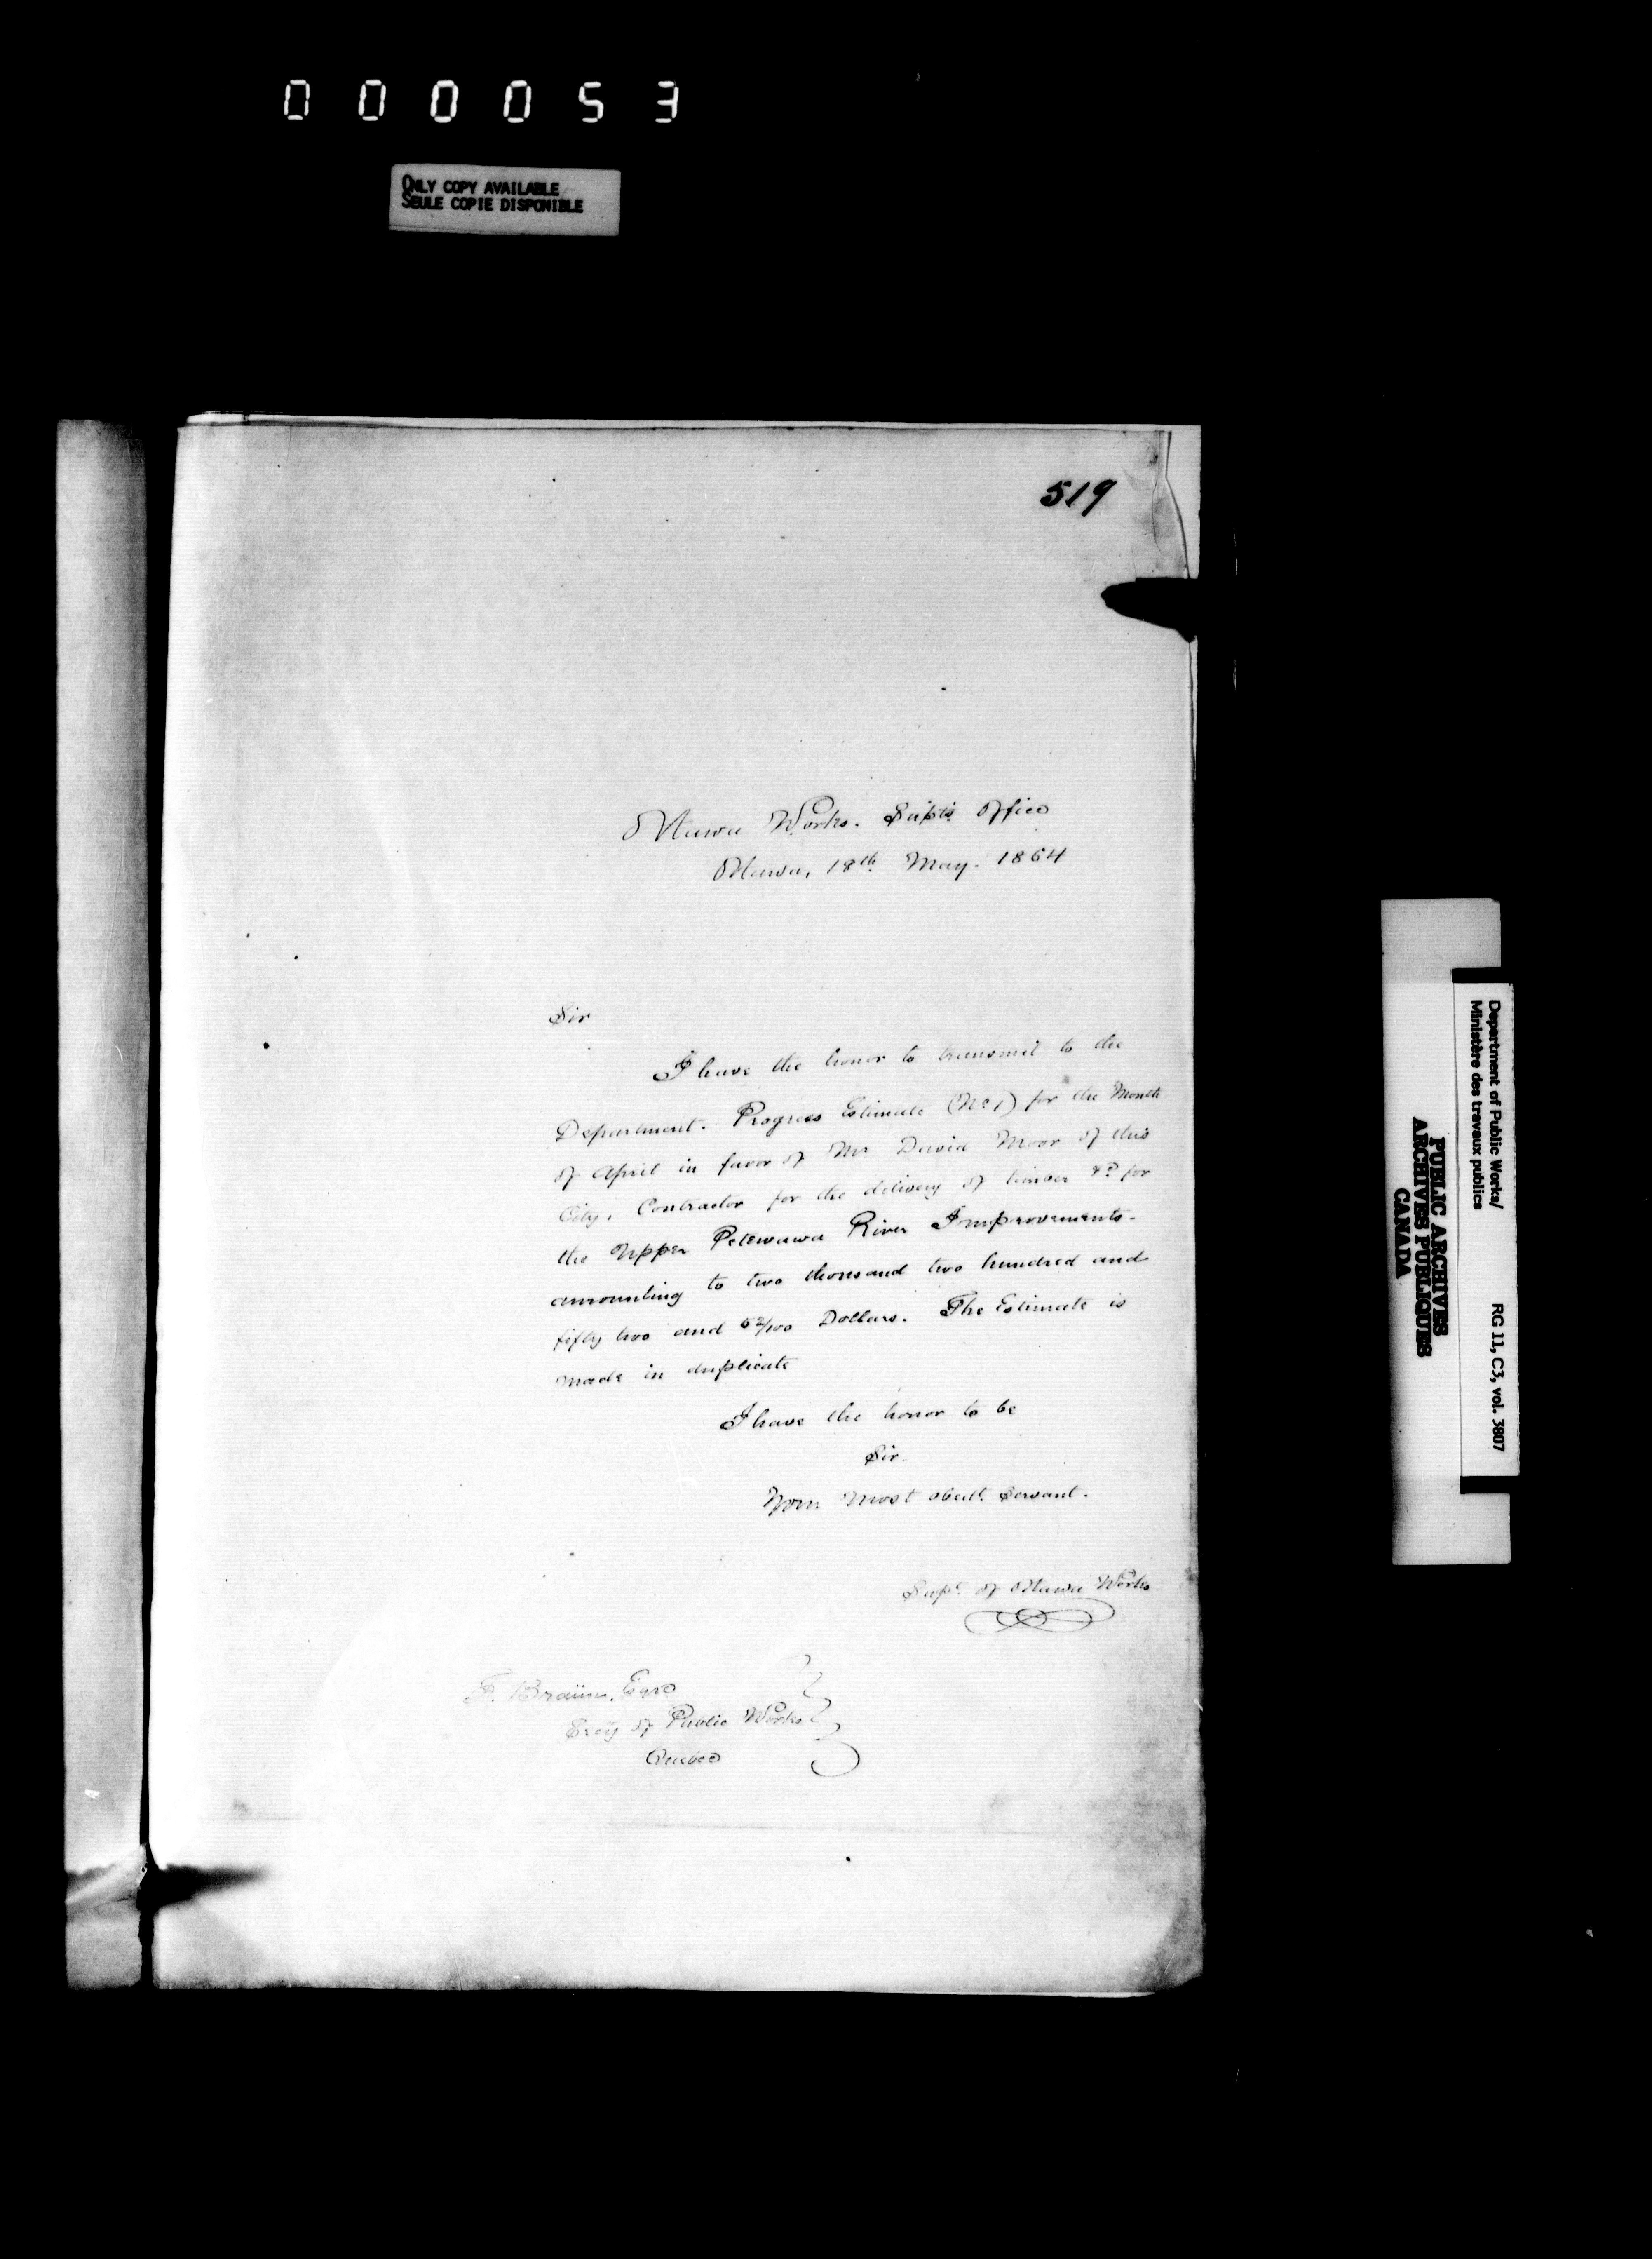 000053
ONLY COPY AVAILABLE
SEULE COPIE DISPONIBLE
519
Ottawa Works. Supt's Office
Ottawa, 18th May. 1864
Sir
I have the honor to transmit to the
Department. Progress Estimate (No 1) for the Month
of April in favor of Mr David Moor of this
City, Contractor for the delivery of timber &c for
the Upper Petewawa River Improvements.
amounting to two thousand two hundred and
fifty two and 52/100 Dollars. The Estimate is
made in duplicate
I have the honor to be
Sir.
Your most obedt. Servant.
Supt. of Ottawa Works
F. Braün, Esqre
Secy of Public Works
Quebec
Department of Public Works/
Ministère des travaux publics
RG 11, C3, vol. 3807
PUBLIC ARCHIVES
ARCHIVES PUBLIQUES
CANADA